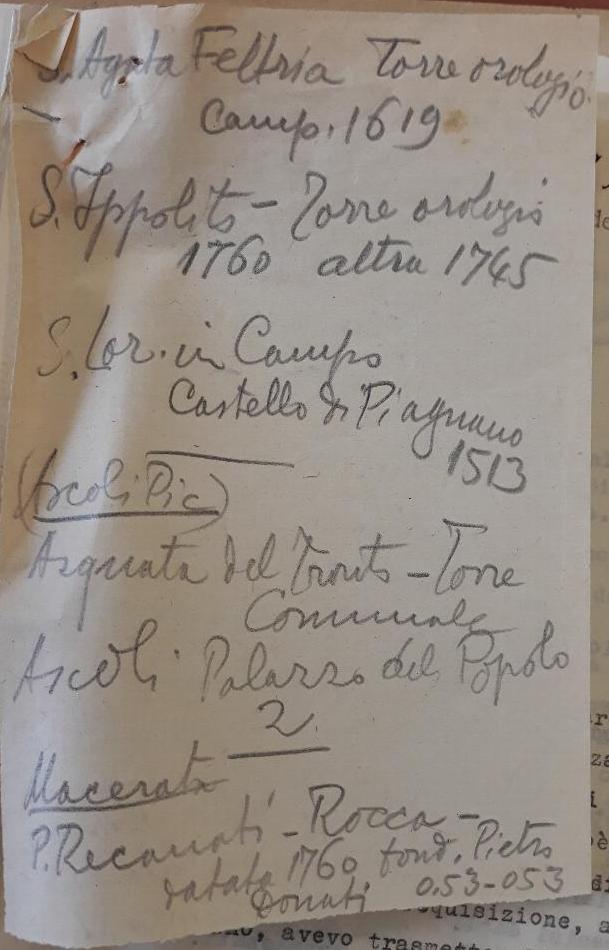 S. Agata Feltria Torre orologio
Camp. 1619
S. Ippolito - Torre orologio
1760 altra 1745
S. Lor. in Campo
Castello di Piagnano
1513
(Ascoli Pic)
Arquata del Tronto - Torre
Comunale
Ascoli Palazzo del Popolo
2
Macerata
P. Recanati - Rocca -
datata 1760 fond. Pietro
Donati 0.53-053
quisizione, a
avevo trasmett